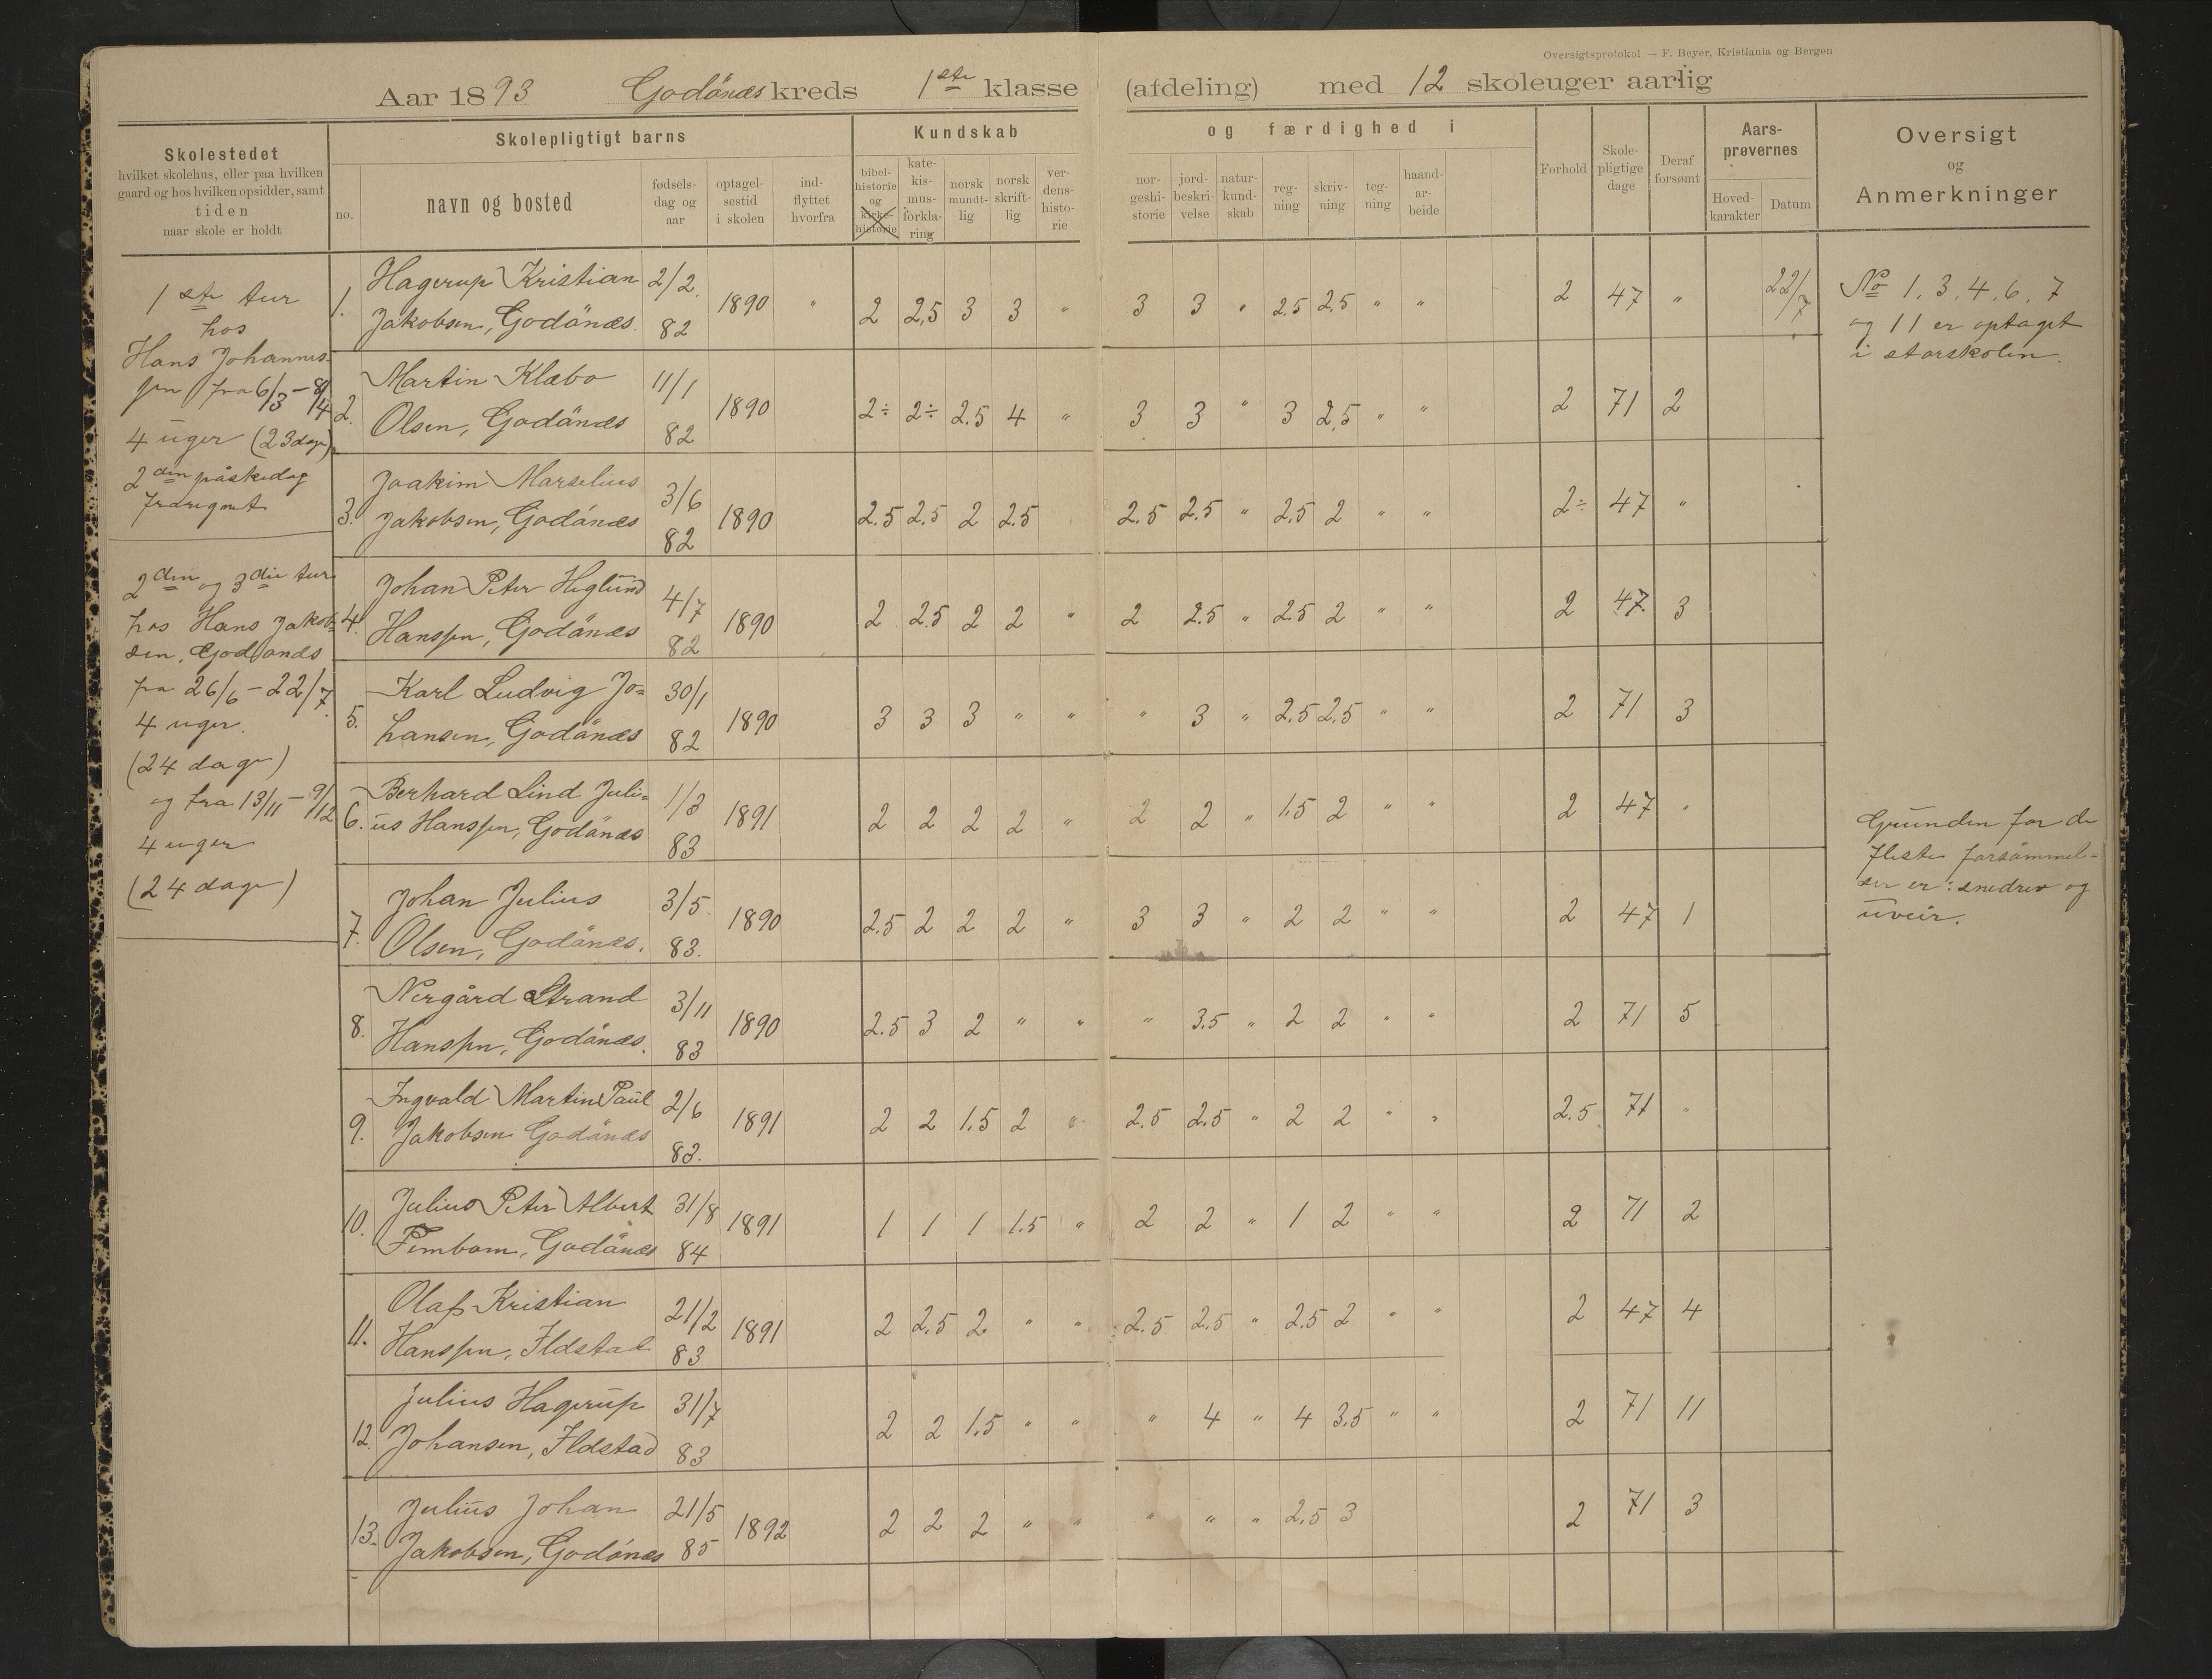 Oversigtsprotokol — F. Beyer, Kristiania og Bergen
Aar 1893 Godönæs kreds 1ste klasse (afdeling) med 12 skoleuger aarlig
Skolestedet
hvilket skolehus, eller paa hvilken
gaard og hos hvilken opsidder, samt
tiden
naar skole er holdt
Skolepligtigt barns
no.
navn og bosted
fødsels-
dag og
aar
optagel-
sestid
i skolen
ind-
flyttet
hvorfra
Kundskab og færdighed i
bibel-
historie
og
kirke-
historie
kate-
kis-
mus-
forkla-
ring
norsk
mundt-
lig
norsk
skrift-
lig
ver-
dens-
histo-
rie
nor-
geshi-
storie
jord-
beskri-
velse
natur-
kund-
skab
reg-
ning
skriv-
ning
teg-
ning
haand-
ar-
beide
Forhold
Skole-
pligtige
dage
Deraf
forsømt
Aars-
prøvernes
Hoved-
karakter
Datum
Oversigt
og
Anmerkninger
1ste tur
hos
Hans Johannes-
sen fra 6/3 – 8/4
4 uger (23 dage)
2den påskedag
fraregnet
2den og 3die tur
hos Hans Jakob-
sen, Godönæs
fra 26/6 – 22/7
4 uger.
(24 dage)
og fra 13/11 – 9/12
4 uger
(24 dage)
1. Hagerup Kristian 2/2.
Jakobsen, Godönæs. 82 1890 " 2 2,5 3 3 " 3 3 " 2.5 2,5 " " 2 47 " 22/7
2. Martin Klæbo 11/1
Olsen, Godönæs 82 1890 2÷ 2÷ 2.5 4 " 3 3 " 3 2,5 " " 2 71 2
3. Joakim Marselius 3/6
Jakobsen, Godönæs 82 1890 2.5 2.5 2 2.5 2.5 2.5 " 2.5 2 " " 2÷ 47 "
4. Johan Peter Heglund 4/7
Hanssen, Godönæs 82 1890 2 2.5 2 2 " 2 2.5 " 2.5 2 " " 2 47 3
5. Karl Ludvig Jo= 30/1
hansen, Godönæs 82 1890 3 3 3 " " " 3 " 2.5 2.5 " " 2 71 3
6. Berhard Lind Juli= 1/3
us Hanssen, Godönæs 83 1891 2 2 2 2 " 2 2 " 1.5 2 " " 2 47 "
7. Johan Julius 3/5
Olsen, Godönæs. 83. 1890 2.5 2 2 2 " 3 3 " 2 2 " " 2 47 1
8. Nergård Strand 3/11
Hanssen, Godönæs. 83 1890 2.5 3 2 " " " 3.5 " 2 2 " " 2 71 5
9. Ingvald Martin Paul 2/6
Jakobsen Godönæs 83. 1891 2 2 1.5 2 " 2.5 2.5 " 2 2 " " 2.5 71 "
10. Julius Peter Albert 31/8
Fembom, Godönæs 84 1891 1 1 1 1.5 " 2 2 " 1 2 " " 2 71 2
11. Olaf Kristian 21/2
Hanssen, Ildstad 83 1891 2 2.5 2 " " 2.5 2.5 " 2.5 2 " " 2 47 4
12. Julius Hagerup 31/7
Johansen, Ildstad 83 2 2 1.5 " " " 4 " 4 3.5 " " 2 71 11
13. Julius Johan 21/5
Jakobsen, Godönæs 85 1892 2 2 2 " " " " " 2.5 3 2 71 3
No 1, 3, 4, 6, 7
og 11 er optaget
i storskolen.
Grunden for de
fleste forsömmel-
ser er: snedrev og
uveir.